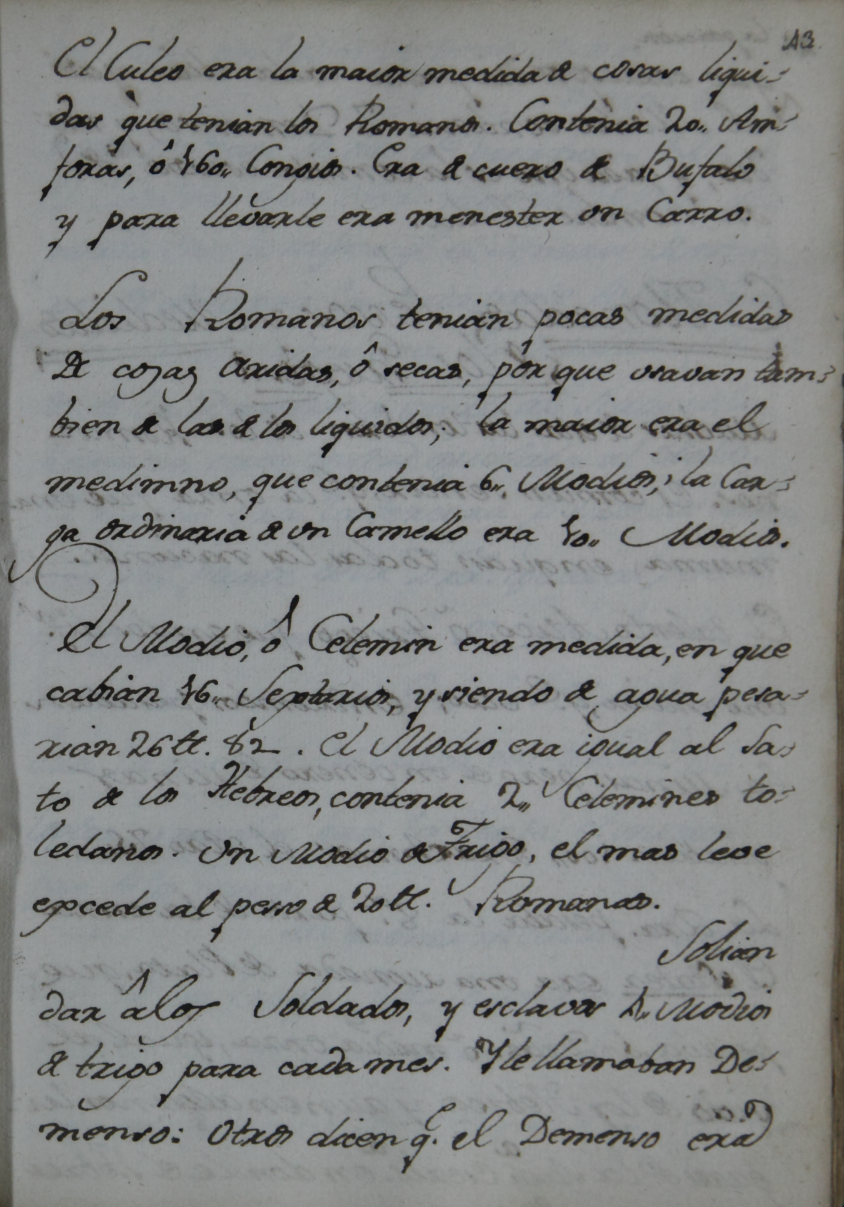 43
El Culeo era la maior medida de cosas liqui-
das que tenian los Romanos. Contenia 20,, Am-
foras, ô 160,, Congios. Era de cuero de Bufalo
y para llevarle era menester un Carro.
Los Romanos tenian pocas medidas
de cosas aridas, ô secas, por que usavan tam-
bien de las de los liquidos; la maior era el
medimno, que contenia 6,, Modios; la Car-
ga ordinaria de un Camello era 10,, Modios.
El Modio, ô Celemin era medida, en que
cabian 16,, Sextarios, y siendo de agua pesa-
rian 26 tt. 82. El Modio era igual al Sa-
to de los Hebreos, contenia 2,, Celemines to-
ledanos. Un Modio de Trigo, el mas leve
excede al pesso de 20 tt. Romanas.
Solian
dar â los Soldados, y esclavos 4,, Modios
de trigo para cada mes. Y le llamaban De-
menso: Otros dicen q.e el Demenso era